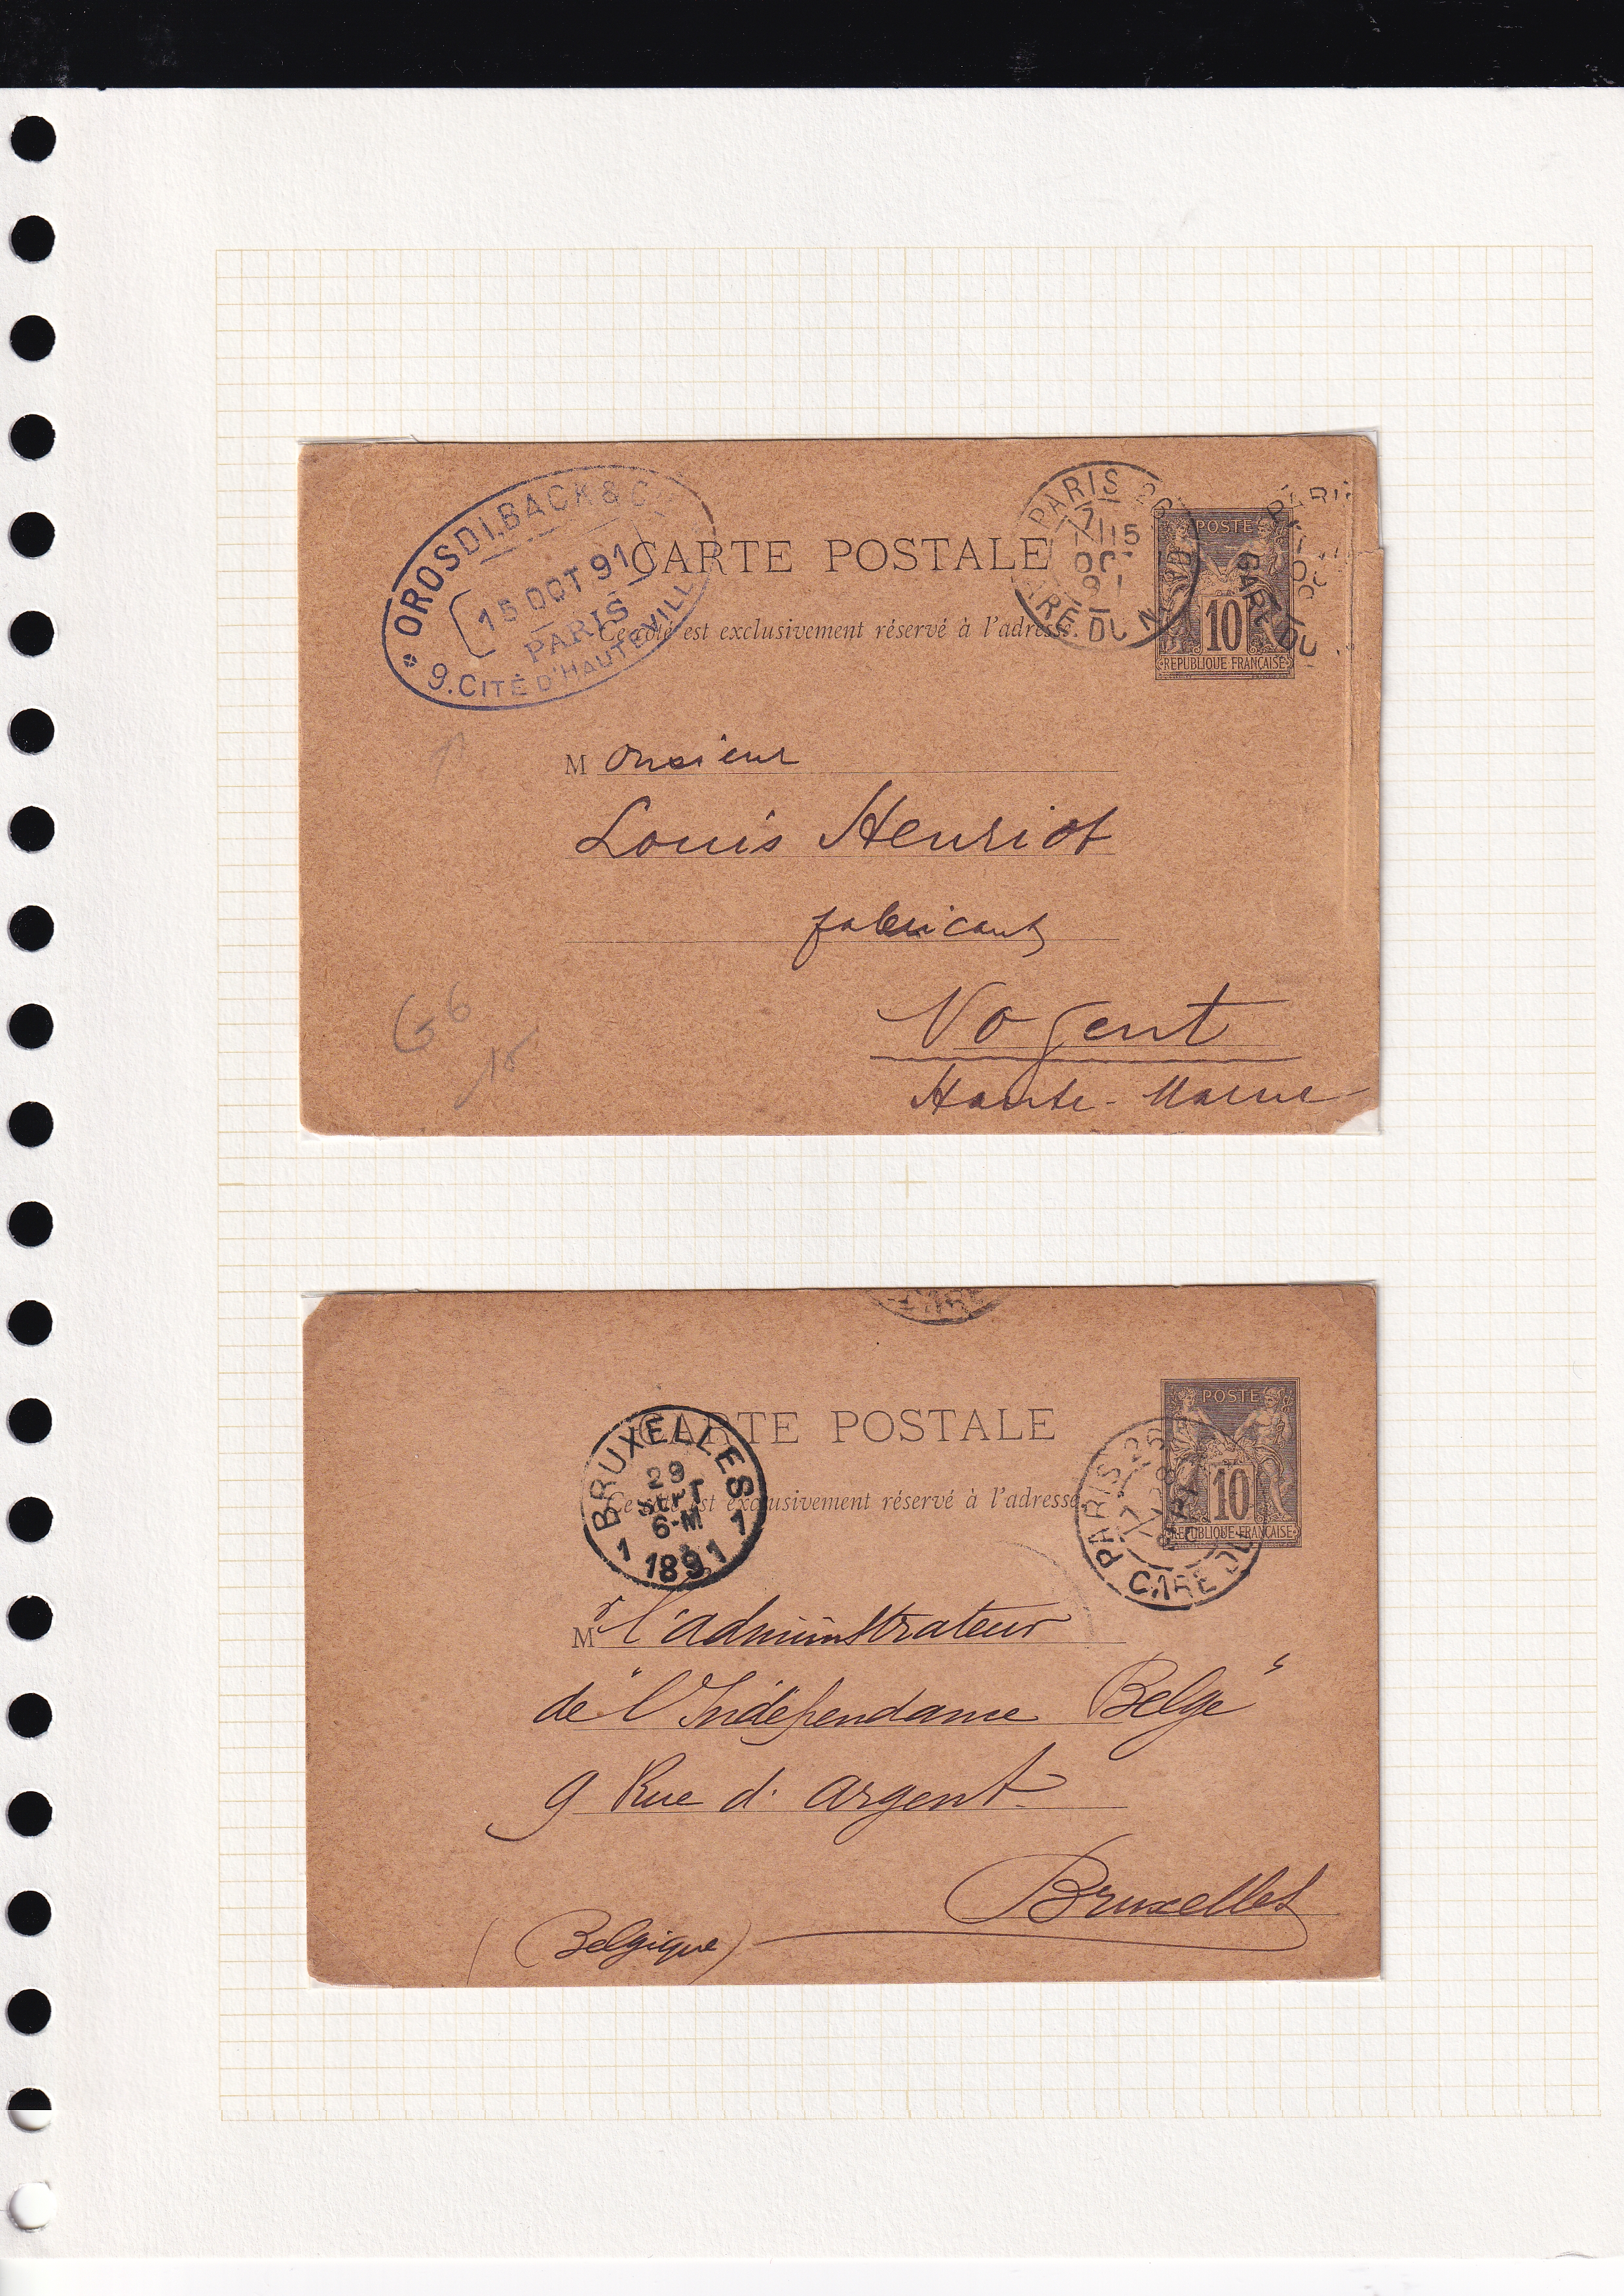 OROSDI.BACK & C
15 OCT 91
PARIS
9. CITÉ D'HAUTEVILL
PARIS 26
7
15
OCT
91
GARE DU N
CARTE POSTALE
Ce côté est exclusivement réservé à l'adresse.
POSTE
10
REPUBLIQUE FRANÇAISE
GARE DU
Monsieur
Louis Henriot
fabricant
Nogent
Haute-Marne
G 6
15
CARTE POSTALE
Ce côté est exclusivement réservé à l'adresse.
BRUXELLES
29
SEPT
6-M
1 1
1891
PARIS 26
GARE DU
POSTE
10
REPUBLIQUE FRANÇAISE
Mr l'administrateur
de "l'Indépendance Belge"
9 Rue d'argent
Bruxelles
(Belgique)